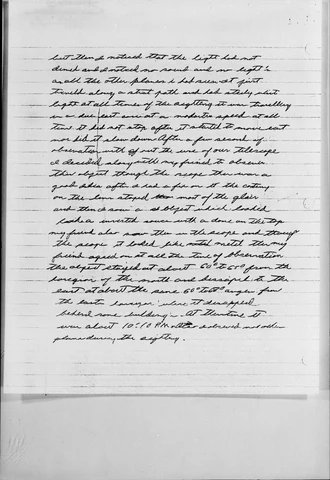 but then I noticed that the light did not
dimed and I noticed no sound and no light's
as all the other planes I had seen. At first
travel along a strat path and had steady
light at all times of the sighting it was travelling
in a due east course at a moderate speed at all
time it did not stop after it started to move east
nor did it slow down After a few seconds of
observation with out the use of our telescope
I decided along with my friend to observe
this object though the scope there was a
good after I had a for on it the coating
on the lens stoped most of the glare
and then I saw a object which looked
like a inverted saucer with a dome on the top
my friend also saw this in the scope and through
the scope it looked like metal the my
friend agreed on at all the time of observation
the object stayed at about 60° to 50° from the
horizion of the north and dissaperd to the
east at about the same 60° to 50° angle from
the east horizon where it dissappeard
behind some building. At the time it
was about 10:10 P.M. I observed no other
planes during the sighting.